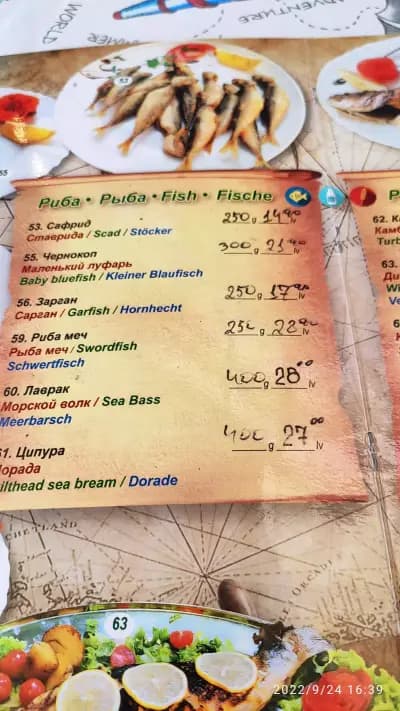 WORLD
ADVENTURE
63
55
Риба • Рыба • Fish • Fische
53. Сафрид
250 g 14 90 lv
Ставрида / Scad / Stöcker
55. Чернокоп
300 g 21 90 lv
Маленький луфарь
Baby bluefish / Kleiner Blaufisch
56. Зарган
250 g 17 90 lv
Сарган / Garfish / Hornhecht
59. Риба меч
250 g 28 90 lv
Рыба меч / Swordfish
Schwertfisch
60. Лаврак
400 g 28 00 lv
Морской волк / Sea Bass
Meerbarsch
61. Ципура
400 g 27 00 lv
Дорада
Gilthead sea bream / Dorade
62.
63.
63
2022/9/24 16:39